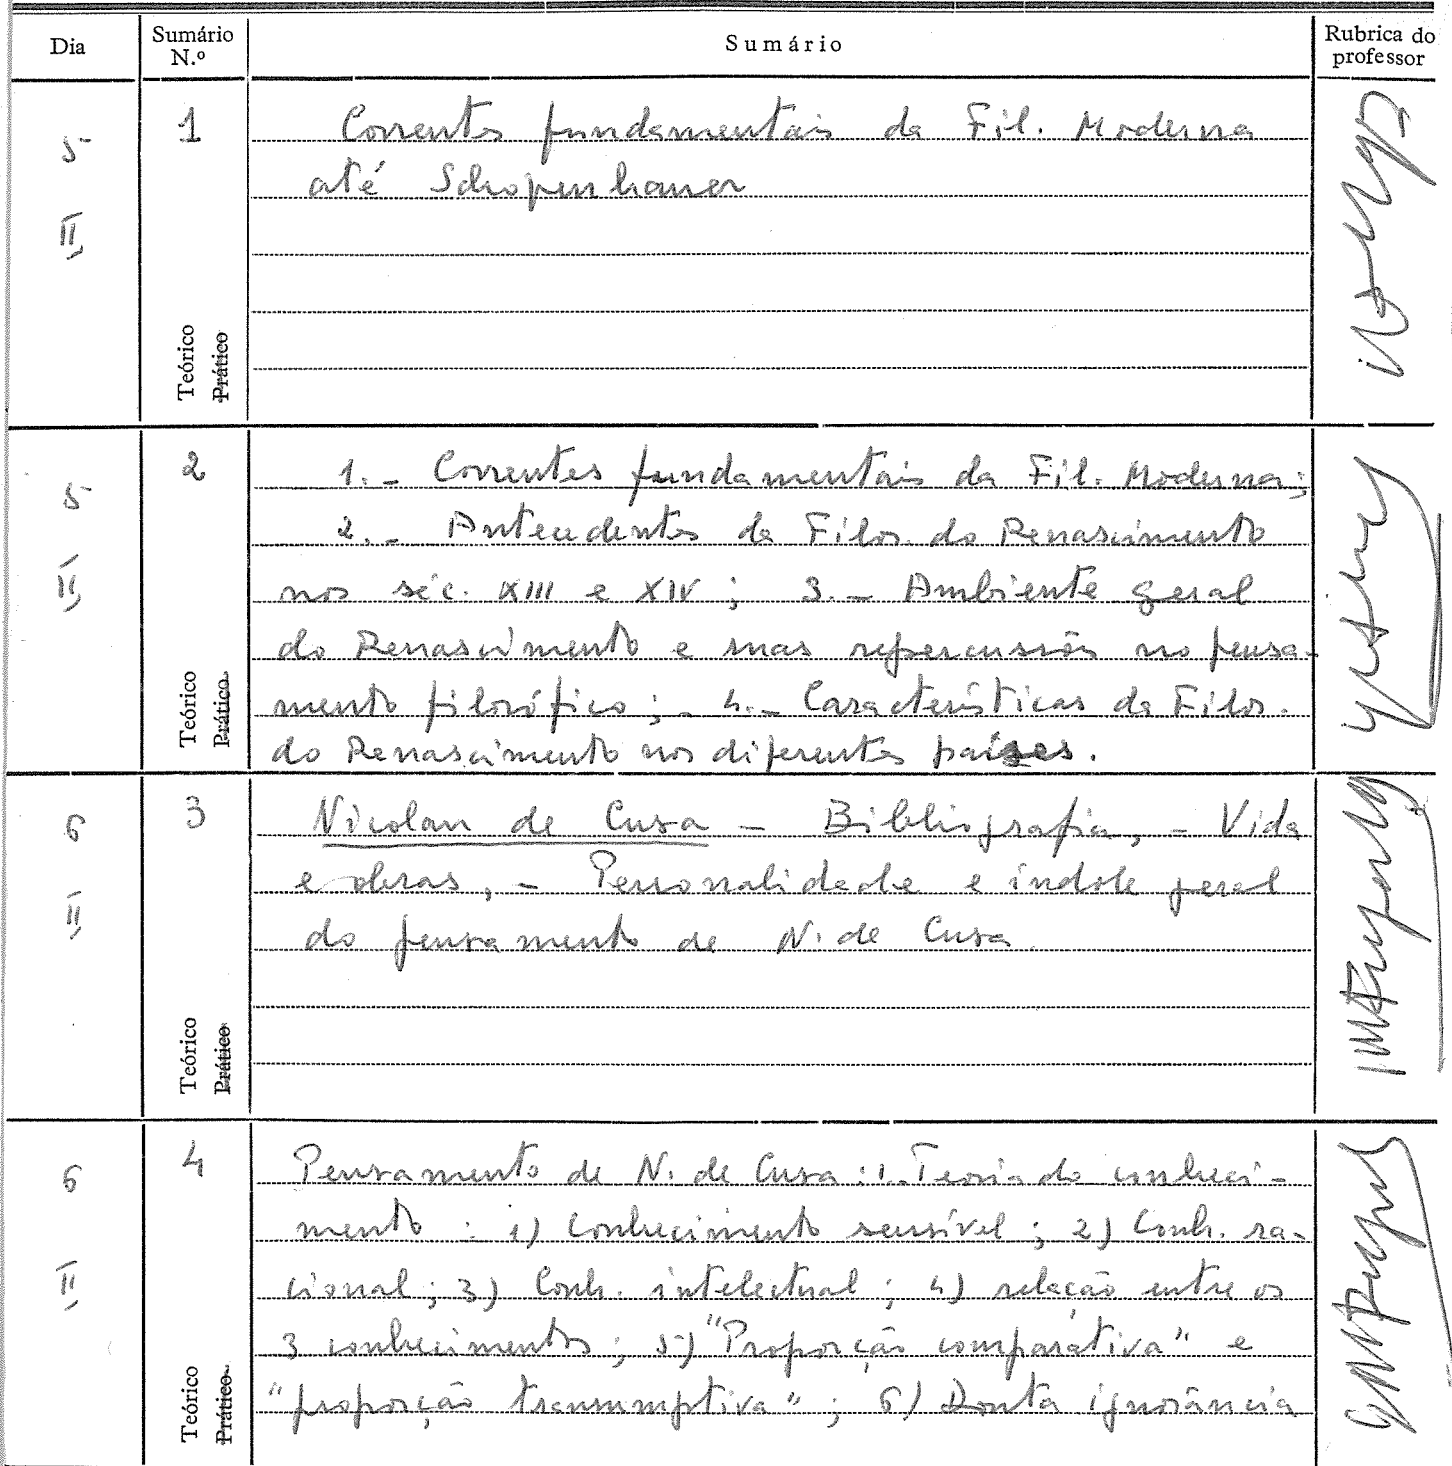 Dia Sumário N.º Sumário Rubrica do professor
5 II
1
Correntes fundamentais da Fil. Moderna
até Schopenhauer
Teórico
Prático
5 II
2
1. - Correntes fundamentais da Fil. Moderna;
2. - Antecedentes da Filos. do Renascimento
nos séc. XIII e XIV; 3. - Ambiente geral
do Renascimento e suas repercussões no pensa-
mento filosófico; - 4. - Características da Filos.
do Renascimento nos diferentes países.
Teórico
Prático
6 II
3
Nicolau de Cusa - Bibliografia, - Vida
e obras, - Personalidade e índole geral
do pensamento de N. de Cusa
Teórico
Prático
6 II
4
Pensamento de N. de Cusa: 1. Teoria do conheci-
mento: 1) Conhecimento sensível; 2) Conh. ra-
cional; 3) Conh. intelectual; 4) relação entre os
3 conhecimentos; 5) "Proporção comparativa" e
"proporção transumptiva"; 6) Douta ignorância
Teórico
Prático